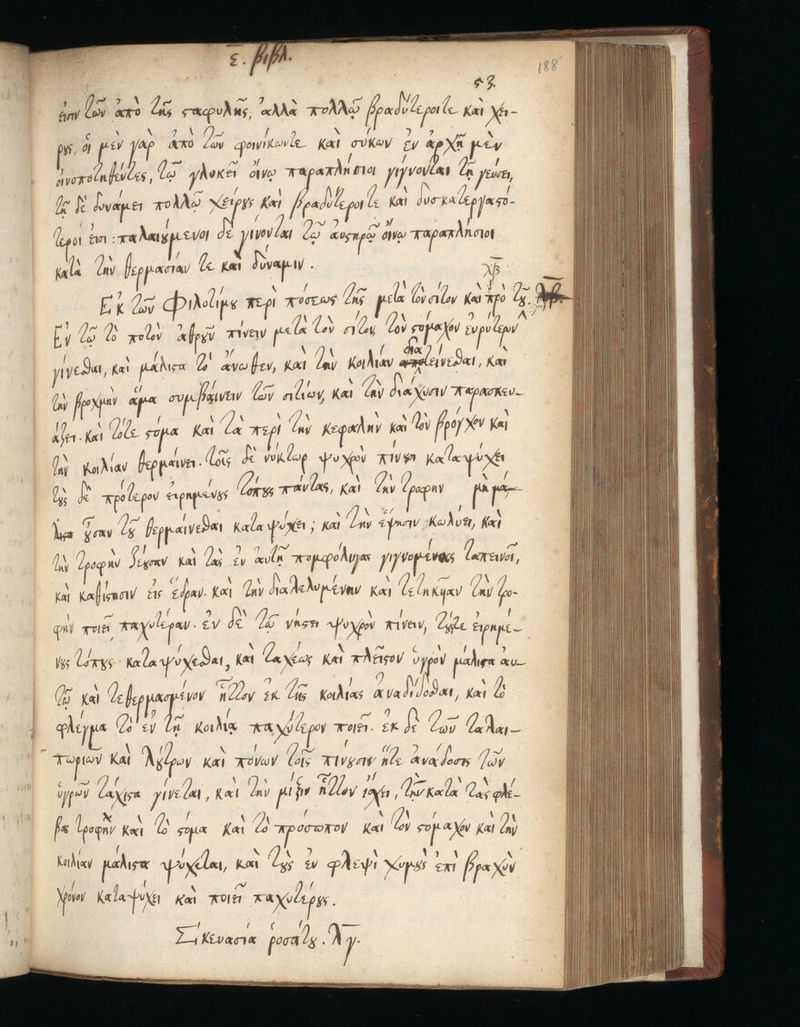 ε̄. βιβλ.
188
53
εἰσιν τῶν ἀπὸ τῆς σαφυλῆς, ἀλλὰ πολλῷ βραδύτεροίτε καὶ χεί-
ρυς, οἱ μὲν γὰρ ἀπὸ τῶν φοινίκωντε καὶ σύκων ἐν ἀρχῇ μὲν
οἰνοποιηθέντες, τῷ γλυκεῖ οἴνῳ παραπλήσιοι γίγνονται τῇ γεύσει,
τῇ δὲ δυνάμει πολλῷ χείρυς καὶ βραδύτεροίτε καὶ δυσκατεργαστό-
τεροί εἰσι: παλαιύμενοι δὲ γίνονται τῷ αὐστηρῷ οἴνῳ παραπλήσιοι
κατὰ τὴν θερμασίαν τε καὶ δύναμιν.
Ἐκ τῶν Φιλοτίμυ περὶ πόσεως τῆς μετὰ τὸν σῖτον καὶ πρὸ τῦ. λβ.
Ἐν τῷ τὸ ποτὸν ἀθρῦν πίνειν μετὰ τὸν σῖτον, τὸν στόμαχον εὐρύτερον
γίνεσθαι, καὶ μάλιστα τὸ ἄνωθεν, καὶ τὴν κοιλίαν διατείνεσθαι, καὶ
τὴν βροχμὴν ἅμα συμβαίνειν τῶν σιτίων, καὶ τὴν διάχυσιν παρασκευ-
άζει. καὶ τότε στόμα καὶ τὰ περὶ τὴν κεφαλὴν καὶ τὸν βρόγχον καὶ
τὴν κοιλίαν θερμαίνει. τοῖς δὲ νύκτωρ ψυχρὸν πίνυσι καταψύχει
τὺς δὲ πρότερον εἰρημένυς τόπυς πάντας, καὶ τὴν τροφὴν μὴ μά-
λιστα ὖσαν τῦ θερμαίνεσθαι καταψύχει; καὶ τὴν ἕψησιν κωλύει, καὶ
τὴν τροφὴν ζέυσαν καὶ τὰς ἐν αὐτῇ πομφόλυγας γιγνομένας ταπεινοῖ,
καὶ καθίστησιν εἰς ἕδραν. καὶ τὴν διαλελυμένην καὶ τετηκυῖαν τὴν τρο-
φὴν ποιεῖ παχυτέραν. ἐν δὲ τῷ νήστει ψυχρὸν πίνειν, τύςτε εἰρημέ-
νυς τόπυς καταψύχεσθαι, καὶ ταχέως καὶ πλεῖστον ὑγρὸν μάλιστα αὐ-
τῷ καὶ τεθερμασμένον ἧττον ἐκ τῆς κοιλίας ἀναδίδοσθαι, καὶ τὸ
φλέγμα τὸ ἐν τῇ κοιλίᾳ παχύτερον ποιεῖ. ἐκ δὲ τῶν ταλαι-
πωριῶν καὶ λύτρων καὶ πόνων τοῖς πίνυσιν ἥτε ἀνάδοσις τῶν
ὑγρῶν τάχιστα γίνεται, καὶ τὴν μίξιν ἧττον ἴσχει, τὴν κατὰ τὰς φλέ-
βας τροφὴν καὶ τὸ στόμα καὶ τὸ πρόσωπον καὶ τὸν στόμαχον καὶ τὴν
κοιλίαν μάλιστα ψύχεται, καὶ τὺς ἐν φλεψὶ χυμὺς ἐπὶ βραχὺν
χρόνον καταψύχει καὶ ποιεῖ παχυτέρυς.
Σκευασία ῥοσάτυ. λγ.